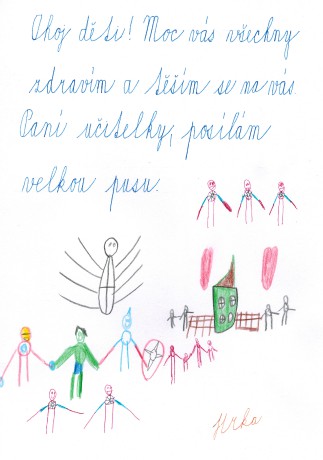 Ahoj děti! Moc vás všechny
zdravím a těším se na vás.
Paní učitelky, posílám
velkou pusu.
Jirka